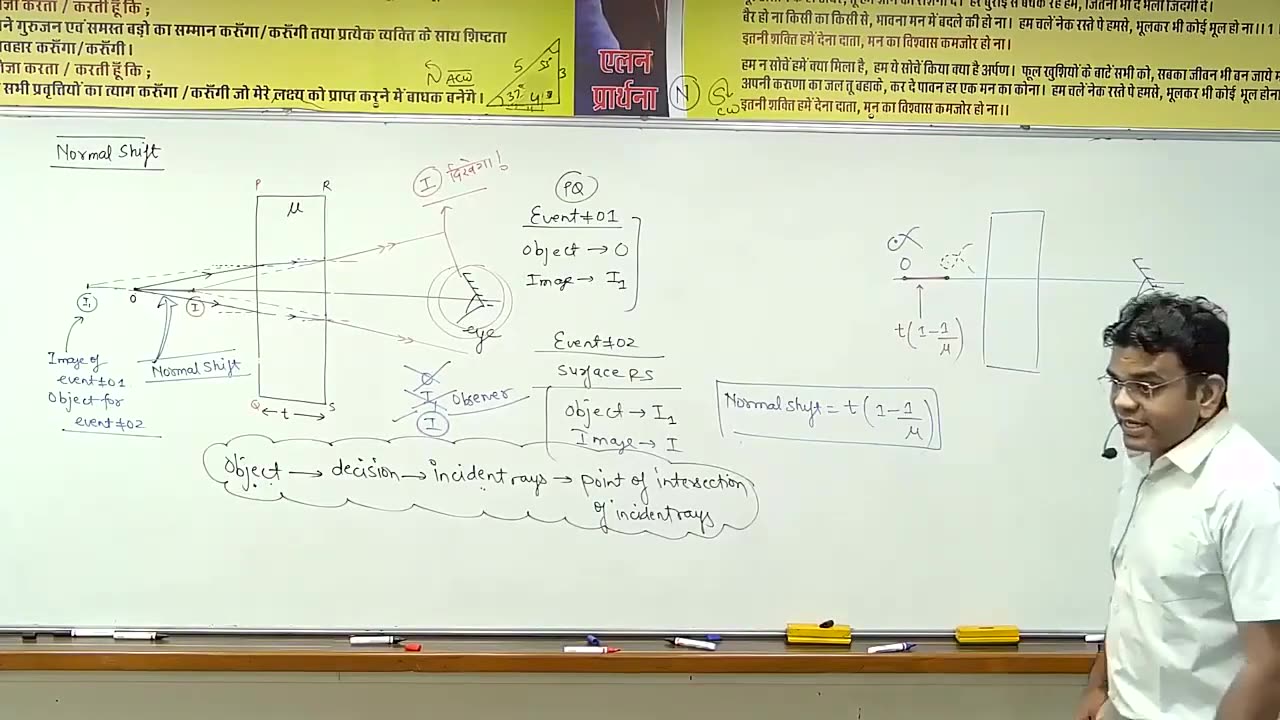 जा करता / करती हूँ कि ;
ने गुरुजन एवं समस्त बड़ो का सम्मान करूँगा/करूँगी तथा प्रत्येक व्यक्ति के साथ शिष्टता
वहार करूँगा/करूँगी।
जा करता / करती हूँ कि ;
सभी प्रवृत्तियों का त्याग करूँगा /करूँगी जो मेरे लक्ष्य को प्राप्त करने में बाधक बनेंगे।
N ACW
5 53° 3
37° 4
एलन
प्रार्थना
N
CW
बैर हो ना किसी का किसी से, भावना मन में बदले की हो ना। हम चले नेक रस्ते पे हमसे, भूलकर भी कोई भूल हो ना।। 1
इतनी शक्ति हमें देना दाता, मन का विश्वास कमजोर हो ना।
हम न सोचें हमें क्या मिला है, हम ये सोचें किया क्या है अर्पण। फूल खुशियों के बाटें सभी को, सबका जीवन भी बन जाये म
अपनी करुणा का जल तू बहाके, कर दे पावन हर एक मन का कोना। हम चले नेक रस्ते पे हमसे, भूलकर भी कोई भूल होना
इतनी शक्ति हमें देना दाता, मन का विश्वास कमजोर हो ना।।
Normal Shift
P R
μ
I दिखेगा!
I1 O I
eye
Q S
t
Image of
event #01
Object for
event #02
Normal Shift
O
I1
I
Observer
PQ
Event #01
Object → O
Image → I1
Event #02
Surface RS
Object → I1
Image → I
Object → decision → incident rays → point of intersection
of incident rays
Normal shift = t(1-1/μ)
O
t(1-1/μ)